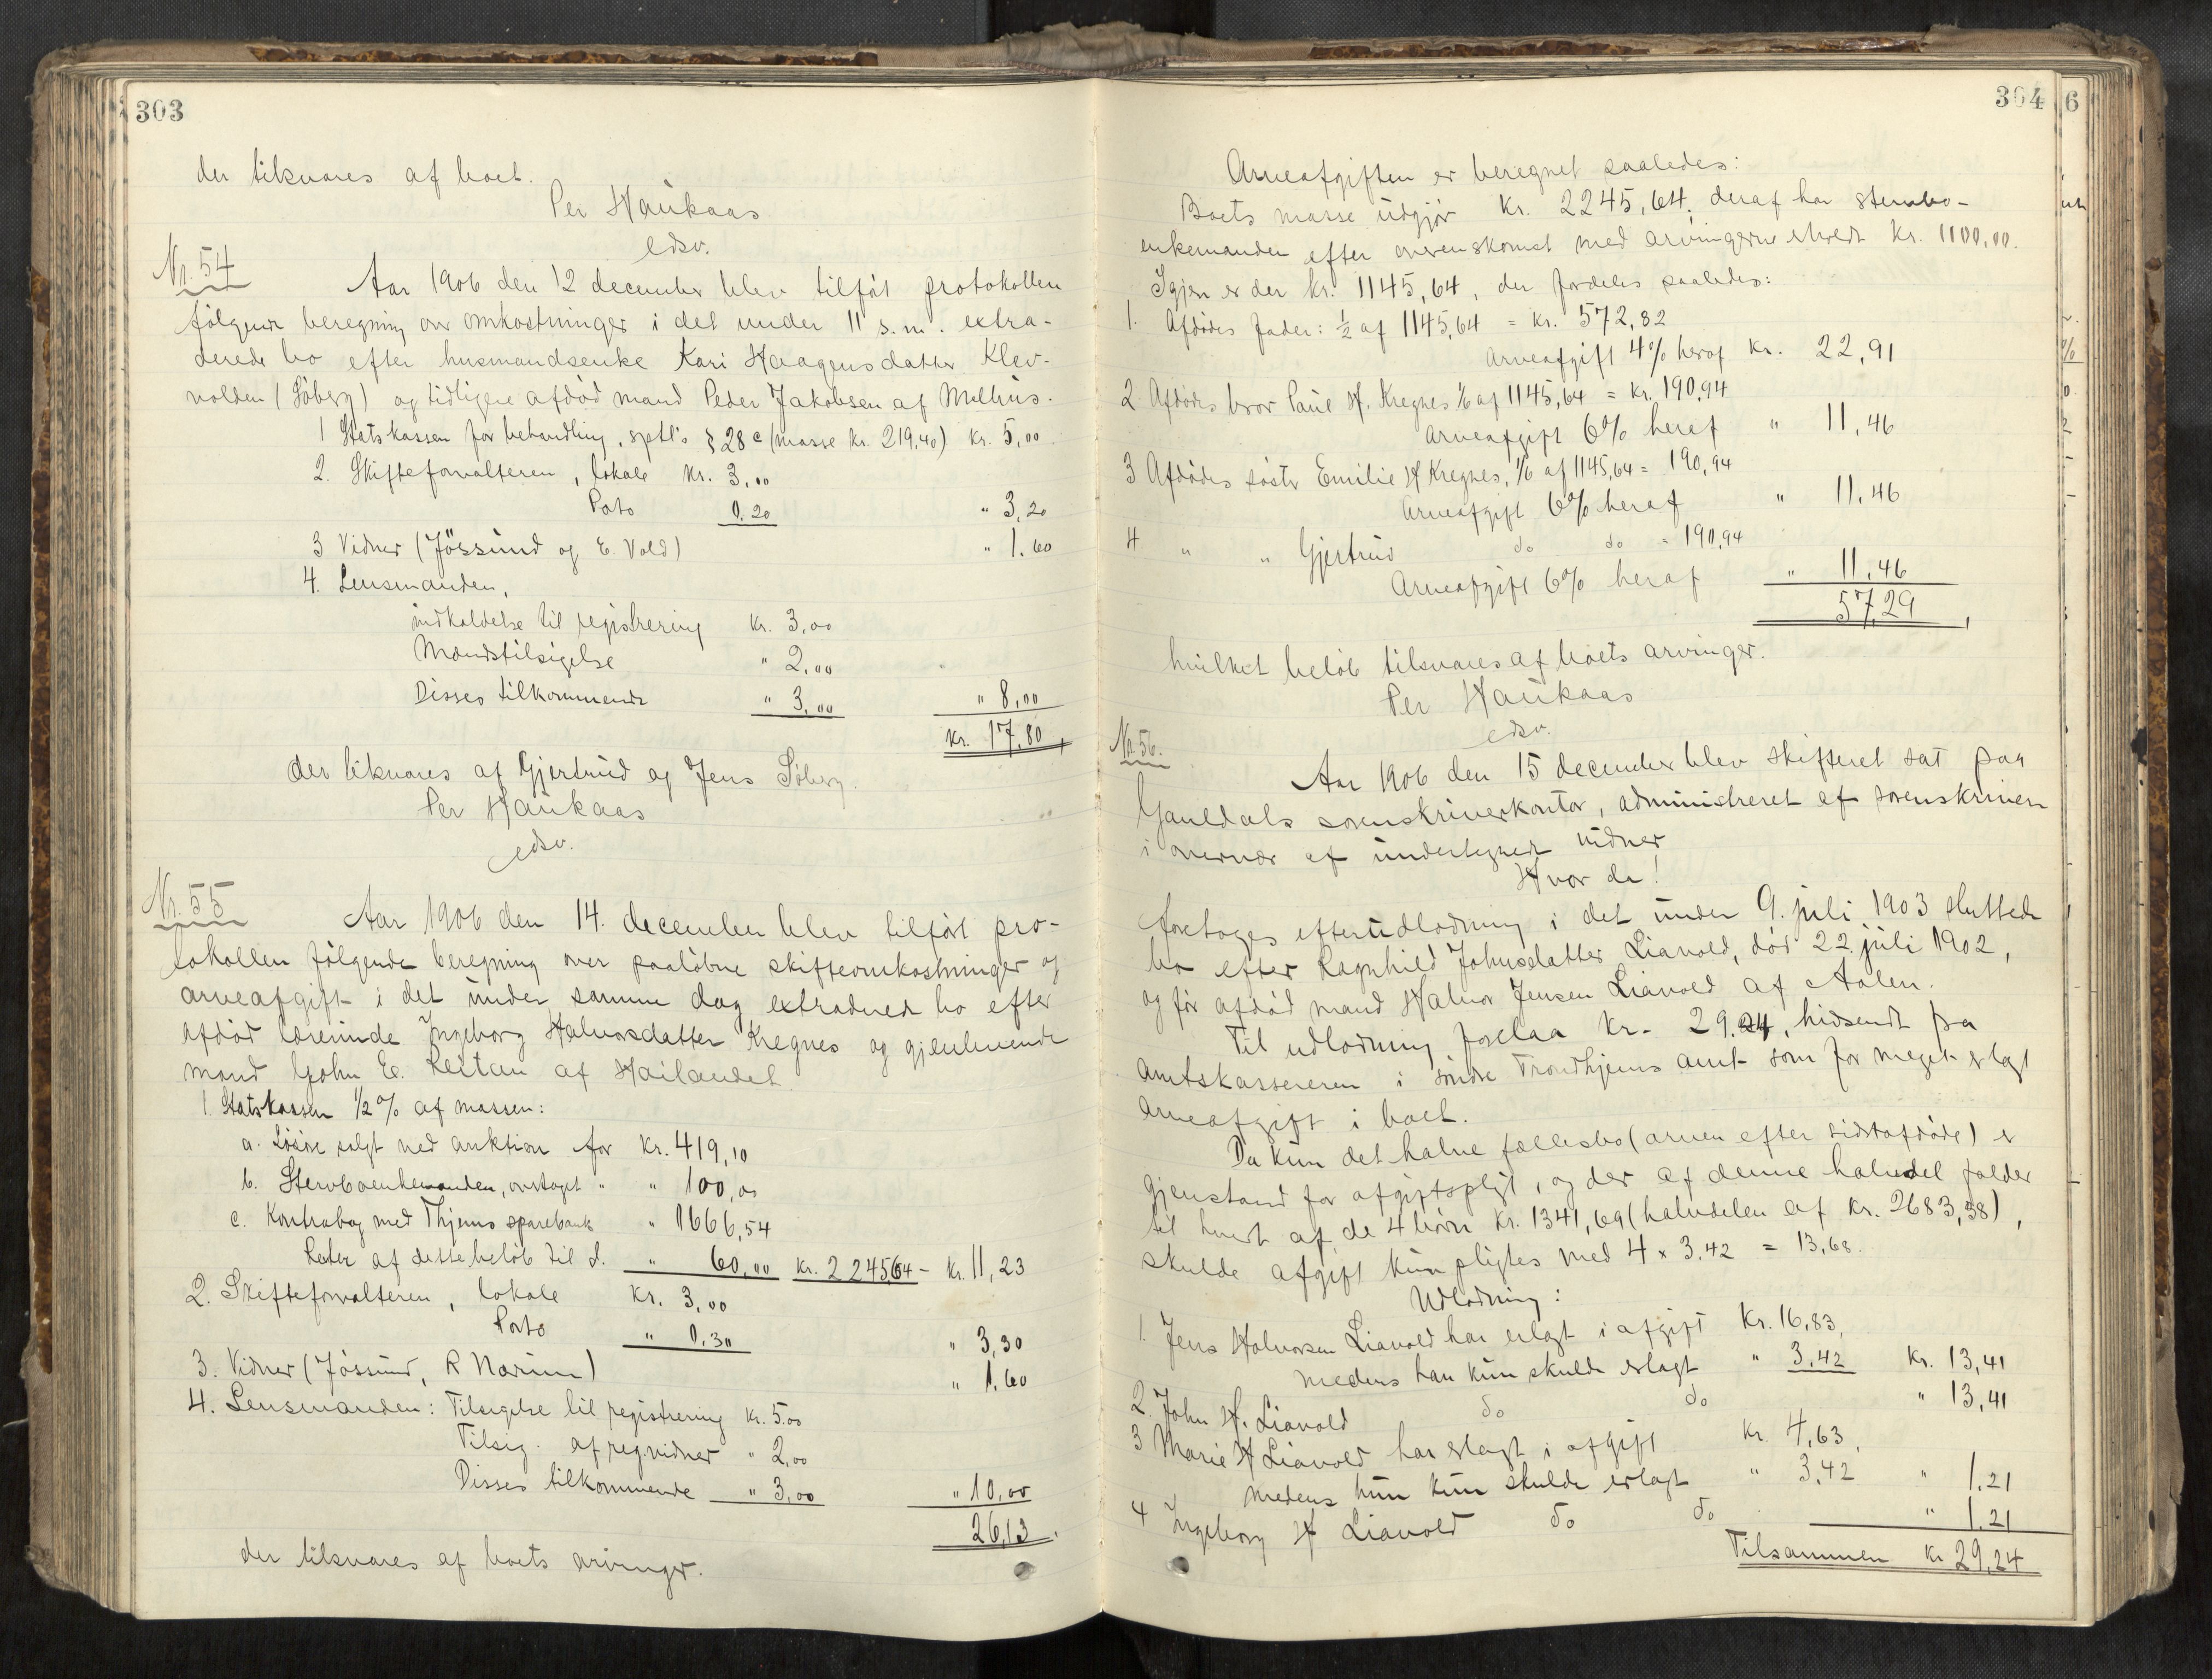 303
der tilsvares af boet.
Per Haukaas
edsv.
Nr. 54
Aar 1906 den 12 december blev tilført protokollen
følgende beregning over omkostninger i det under 11 s.m. extra-
derede bo efter husmandsenke Kari Haagensdatter Klev-
volden (Søberg) og tidligere afdød mand Peder Jakobsen af Melhus.
1 Statskassen for behandling, sptl's § 28 c (masse kr. 219,40) kr. 5,00
2. Skifteforvalteren, lokale kr. 3,00
Porto 0,20 " 3,20
3 Vidner (Jössund og E. Vold) " 1.60
4. Lensmanden,
indkaldelse til registrering kr. 3,00
Mandstilsigelse " 2,00
Disses tilkommende " 3,00 " 8,00
kr. 17,80
der tilsvares af Gjertrud og Jens Søberg.
Per Haukaas
edsv.
Nr. 55
Aar 1906 den 14. december blev tilført pro-
tokollen følgende beregning over paaløbne skifteomkostninger og
arveafgift i det under samme dag extraderede bo efter
afdød lærerinde Ingeborg Halvorsdatter Kregnes og gjenlevende
mand John E. Reitan af Højlandet
1. Statskassen ½ % af massen:
a. Løsøre solgt ved auktion for kr. 419,10
b. Stervboenkemanden, overtaget " " 100,00
c. Kontrabog med Thjems sparebank " 1666,54
Renter af dette beløb til d. " 60,00 kr. 2245,64 - kr. 11,23
2. Skifteforvalteren, lokale kr. 3,00
Porto " 0,30 " 3,30
3. Vidner (Jössund, R Narum) " 1.60
4. Lensmanden: Tilsigelse til registrering kr. 5.00
Tilsig. af reg.vidner " 2,00
Disses tilkommende " 3,00 " 10,00
26,13.
der tilsvares af boets arvinger.
304
Arveafgiften er beregnet saaledes:
Boets masse udgjør kr. 2245,64, deraf har stervbo-
enkemanden efter overenskomst med arvingerne erholdt kr. 1100,00.
Igjen er der kr. 1145,64, der fordeles saaledes:
1. Afdødes fader: ½ af 1145,64 = kr. 572,82
Arveafgift 4% heraf kr. 22,91
2 Afdødes bror Paul H. Kregnes 1/6 af 1145,64 = kr. 190,94
Arveafgift 6% heraf " 11,46
3 Afdødes søster Emilie H Kregnes, 1/6 af 1145,64 = 190,94
Arveafgift 6% heraf " 11,46
4 " " Gjertrud do do = 190,94
Arveafgift 6% heraf " 11,46
57,29
hvilket beløb tilsvares af boets arvinger.
Per Haukaas
edsv.
Nr. 56.
Aar 1906 den 15 december blev skifteret sat paa
Gauldals sorenskriverkontor, administreret af sorenskriveren
i overvær af undertegnede vidner,
Hvor da!
foretoges efterudlodning i det under 9. juli 1903 sluttede
bo efter Ragnhild Johnsdatter Liavold, død 22. juli 1902,
og før afdød mand Halvor Jensen Liavold af Aalen.
Til udlodning forelaa kr. 29.24, hidsendt fra
Amtskassereren i søndre Trondhjems amt som for meget erlagt
arveafgift i boet.
Da kun det halve fællesbo (arven efter sidstafdøde) er
gjenstand for afgiftspligt, og der af denne halvdel falder
til hvert af de 4 børn kr. 1341,69 (halvdelen af kr. 2683,38),
skulde afgift kun pligtes med 4 x 3.42 = 13,68.
Udlodning:
1. Jens Halvorsen Liavold har erlagt i afgift kr. 16,83,
medens han kun skulde erlagt " 3,42 kr. 13,41
2. John H. Liavold do do " 13,41
3 Marie H Liavold har erlagt i afgift kr. 4,63,
medens hun kun skulde erlagt " 3,42 " 1,21
4 Ingeborg H Liavold do do " 1.21
Tilsammen kr 29,24